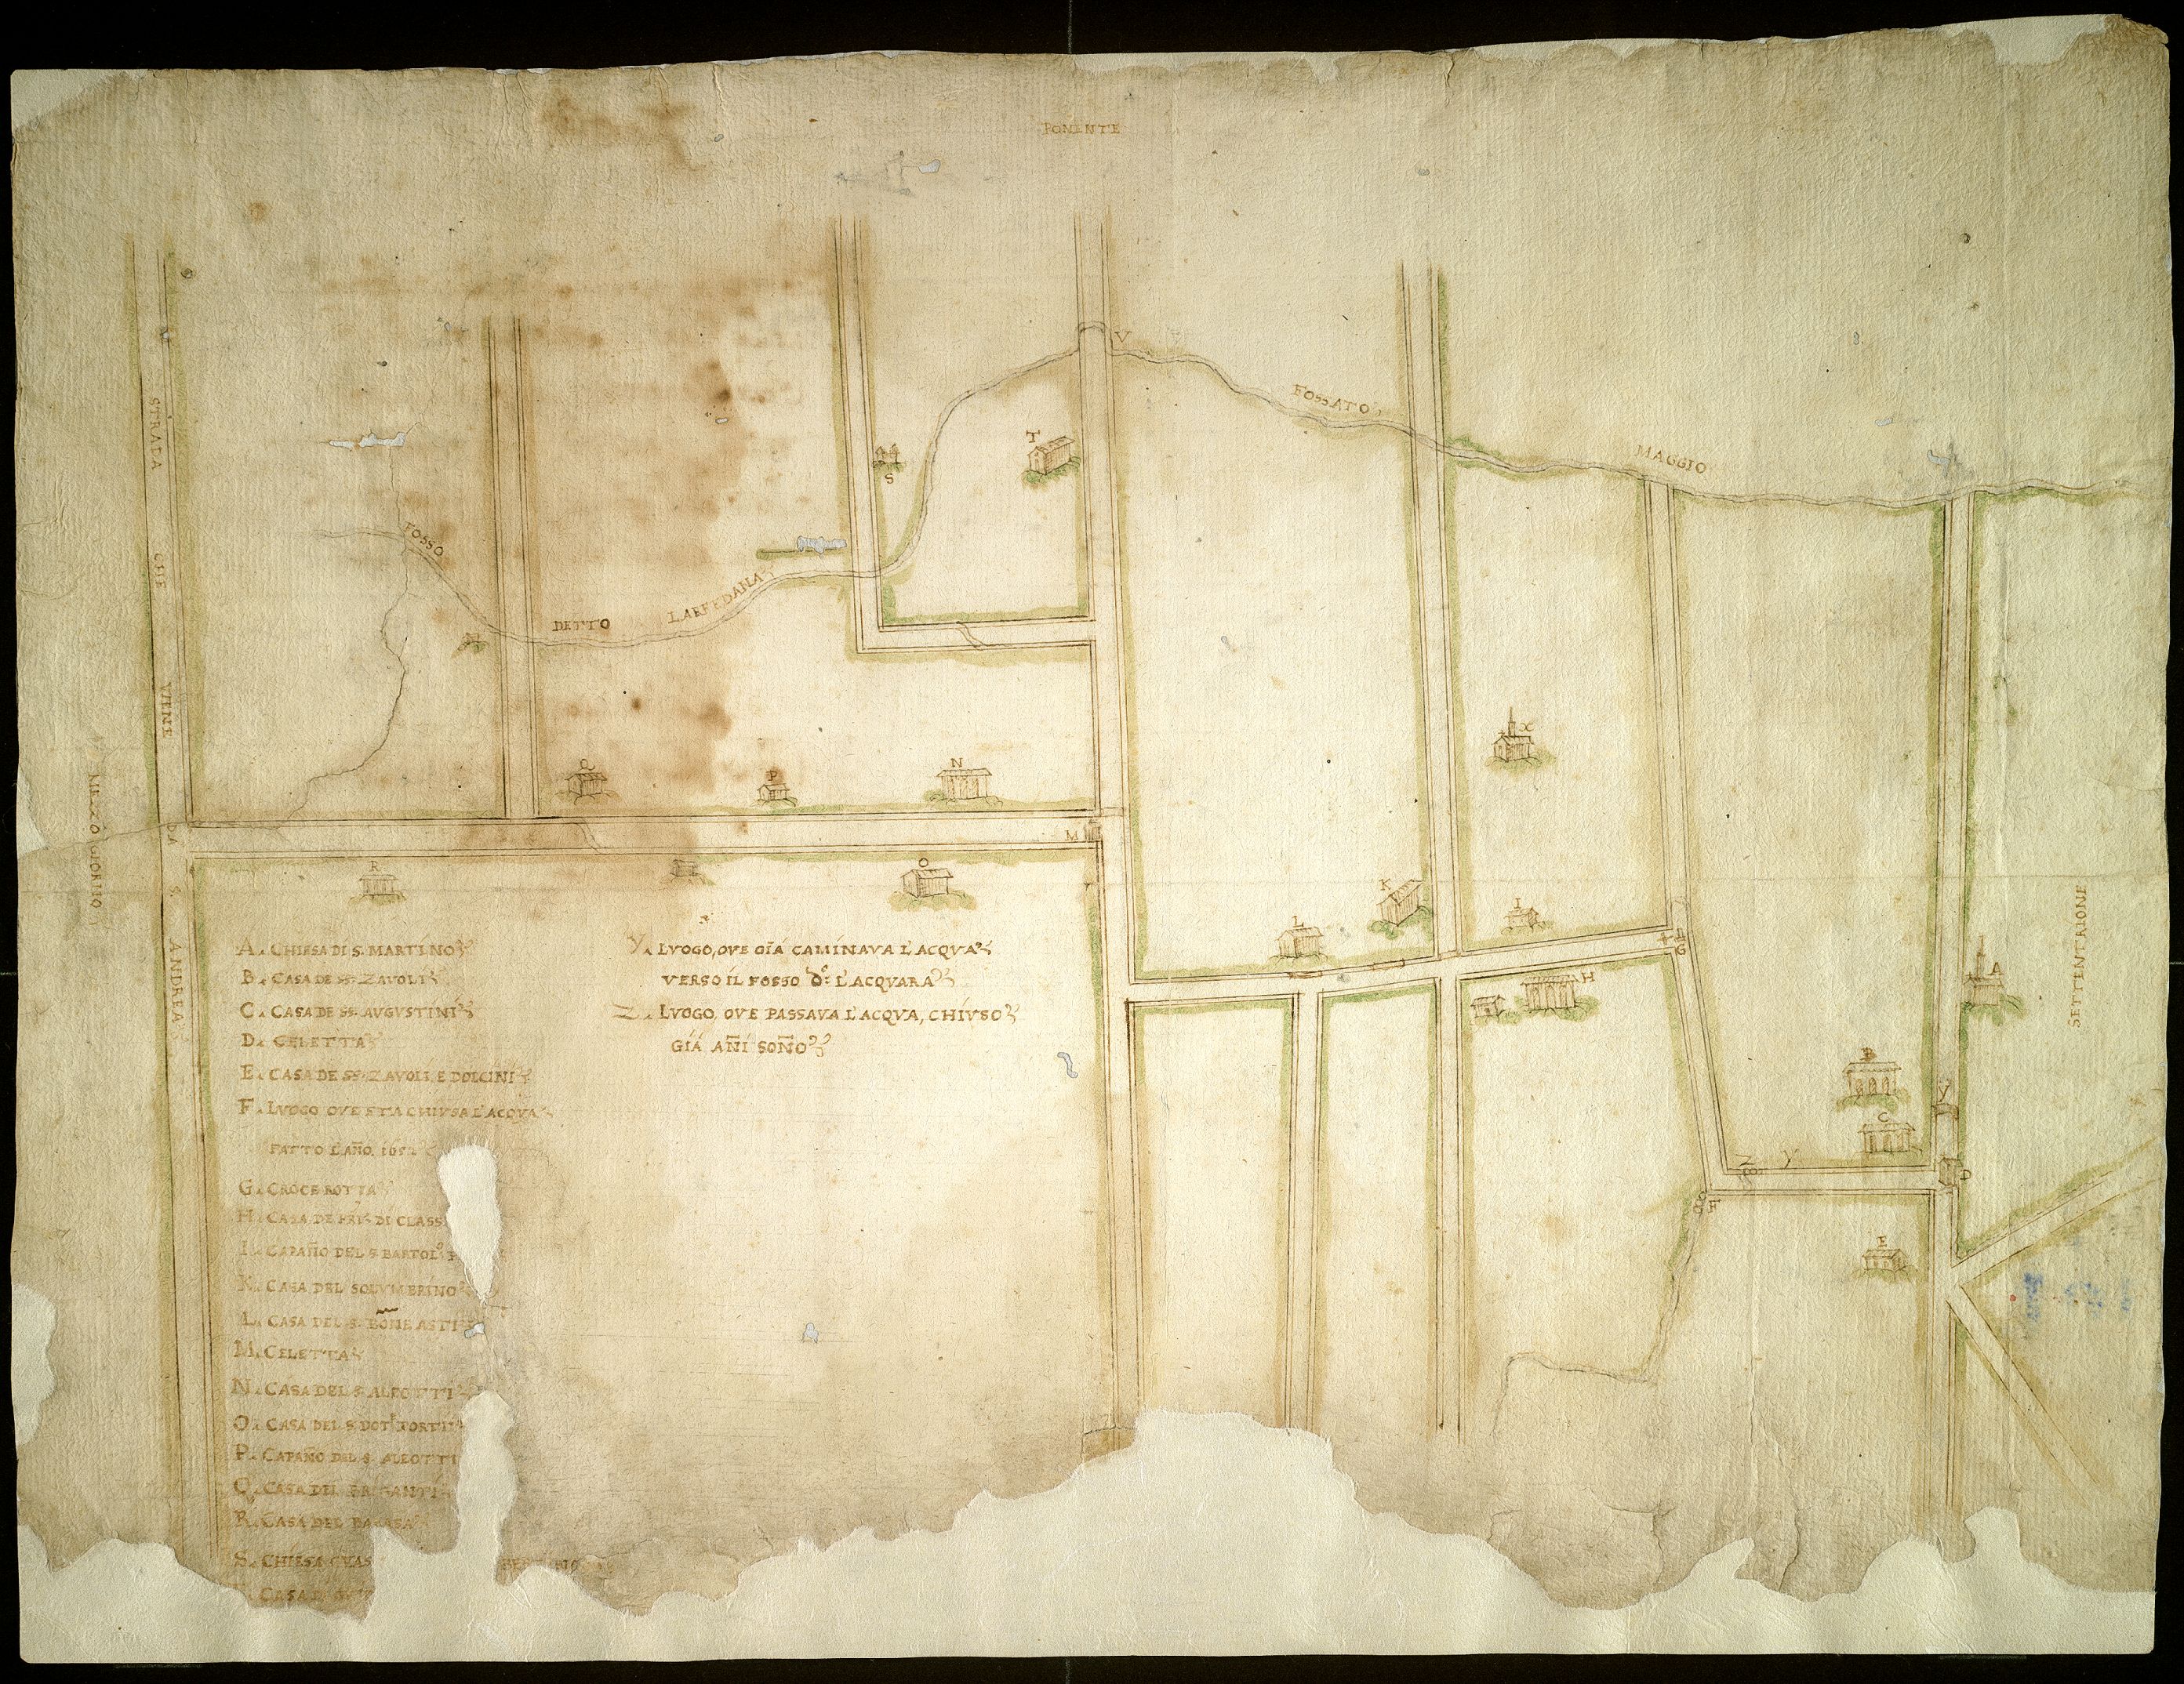 PONENTE
V
FOSSATO
MAGGIO
T
S
STRADA CHE VIENE DA S. ANDREA
FOSSO
DETTO
X
MEZZO GIORNO
Q
P
N
M
R
O
K
L
I
G
H
A
SETTENTRIONE
B
Y
C
Z Y
D
F
E
A. CHIESA DI S. MARTINO
B. CASA DE SS. ZAVOLI
C. CASA DE SS. AUGUSTINI
D. CELETTA
E. CASA DE SS. ZAVOLI, E DOLCINI
F. LUOGO OVE STA CHIUSA L'ACQUA
FATTO L'AÑO. 1652
G. CROCE ROTTA
H. CASA DE PRI DI CLASS
I. CAPAÑO DEL S. BARTOLO
K. CASA DEL SOLVMBRINO
L. CASA DEL S. BOÑE ASTI
M. CELETTA
N. CASA DEL S. ALEOTTI
O. CASA DEL S. DOT. FORTI
P. CAPAÑO DEL S. ALEOTTI
Q. CASA DEL BRIGANTI
R. CASA DEL
S. CHIESA
CASA
Y. LVOGO, OVE GIÁ CAMINAVA L'ACQVA
VERSO IL FOSSO Do: L'ACQVARA
Z. LVOGO, OVE PASSAVA L'ACQVA, CHIVSO
GIÁ AÑI SOÑO